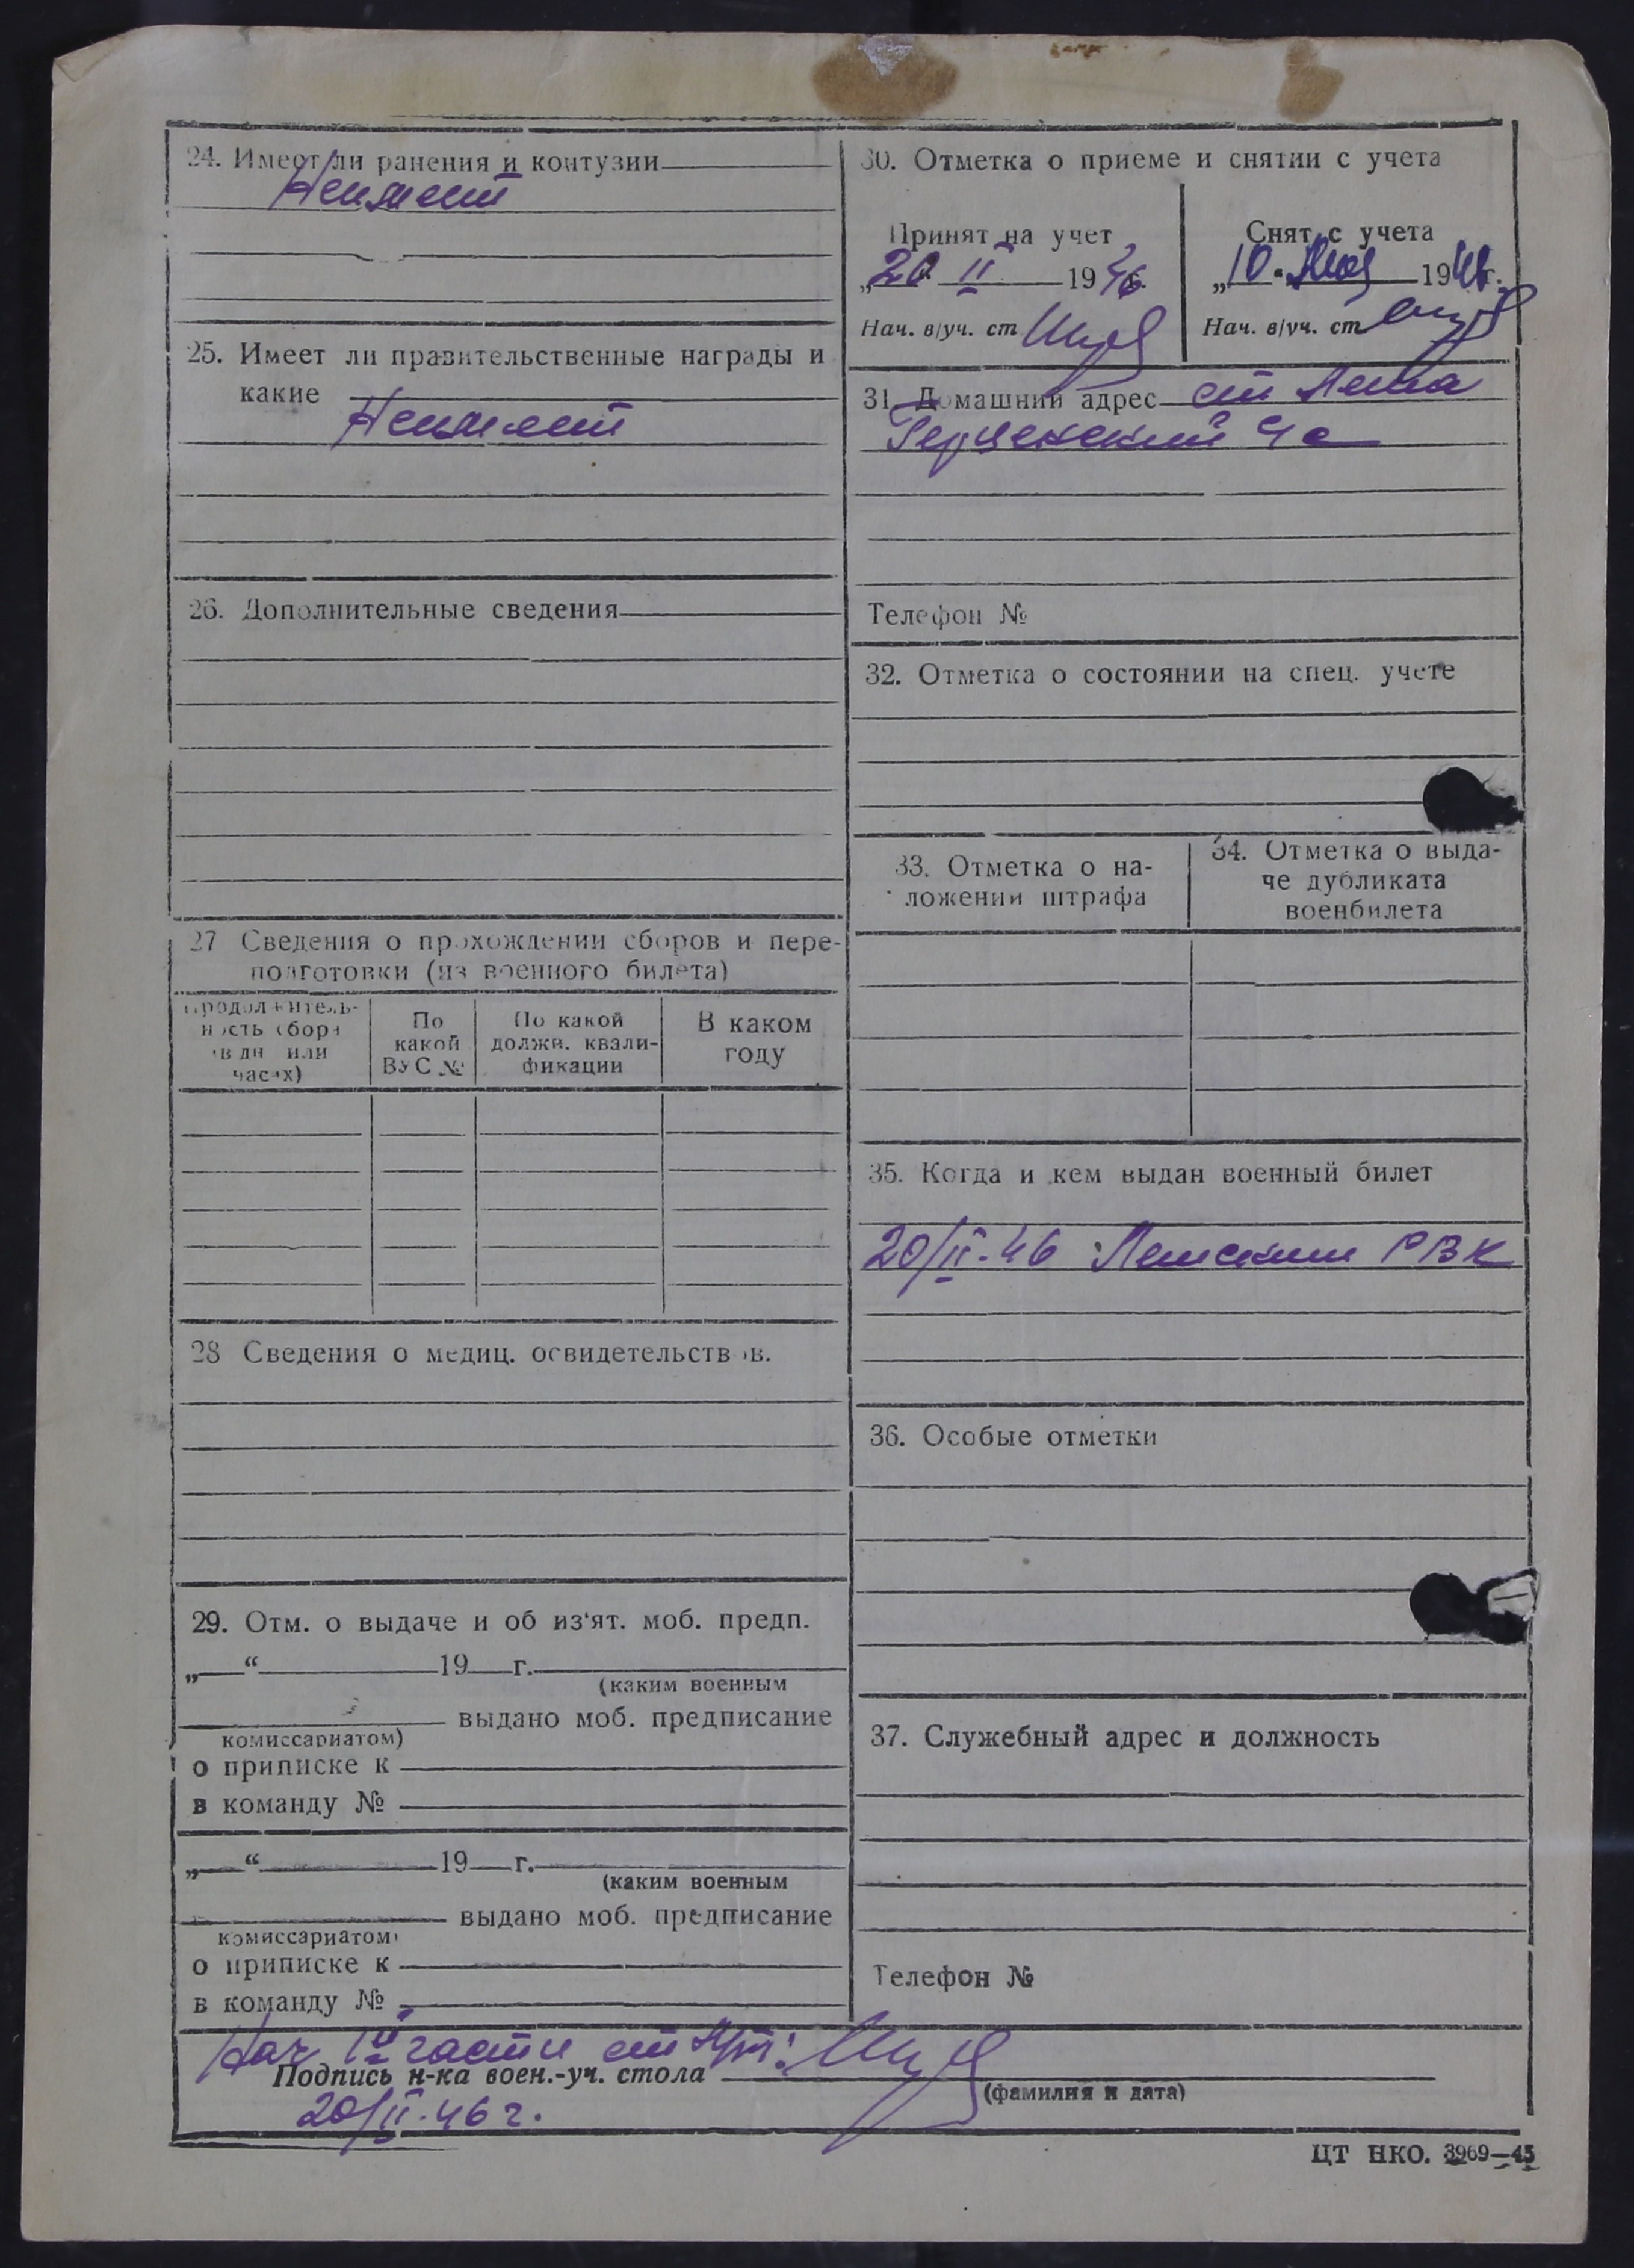 24. Имеет ли ранения и контузии
Неимеет
25. Имеет ли правительственные награды и
какие
Неимеет
26. Дополнительные сведения
27 Сведения о прохождении сборов и пере-
подготовки (из военного билета)
Продолжитель-
ность сбора
(в дн или
часах)
По
какой
ВУС №
По какой
должн. квали-
фикации
В каком
году
28 Сведения о медиц. освидетельствов.
29. Отм. о выдаче и об из‘ят. моб. предп.
„ “ 19 г.
(каким военным
выдано моб. предписание
комиссариатом)
о приписке к
в команду №
„ “ 19 г.
(каким военным
выдано моб. предписание
комиссариатом)
о приписке к
в команду №
30. Отметка о приеме и снятии с учета
Принят на учет
„20 II 1946
Нач. в/уч. ст
Снят с учета
„10 • 1946г.
Нач. в/уч. ст
31. Домашний адрес ст
Телефон №
32. Отметка о состоянии на спец. учете
33. Отметка о на-
ложении штрафа
34. Отметка о выда-
че дубликата
военбилета
35. Когда и кем выдан военный билет
20/II-46 РВК
36. Особые отметки
37. Служебный адрес и должность
Телефон №
Нач части
Подпись н-ка воен.-уч. стола
(фамилия и дата)
20/II-46 г.
ЦТ НКО. 3969—45